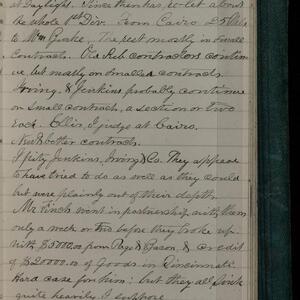 at Daylight. Since then has, to let about
the whole 1st Div. from Cairo 25 Mls
to Wm Burke, the rest mostly in small
contracts. Old Sub contractors continue
, but mostly on smaller contracts.
Irving & Jenkins probably continue
on small contract, a section or two
each. Ellis, I judge at Cairo.
Nick better contract.
I pity Jenkins, Irving & Co. They appear
to have tried to do as well as they could
but were plainly out of their depth.
Mr Finch went in partnership with them
only a week or two before they broke up.
with $5000.00 from Page & Eason, & credit
of $20000.00 of Goods in Cincinnati.
Hard case for him; but they all drink
quite heavily I suppose